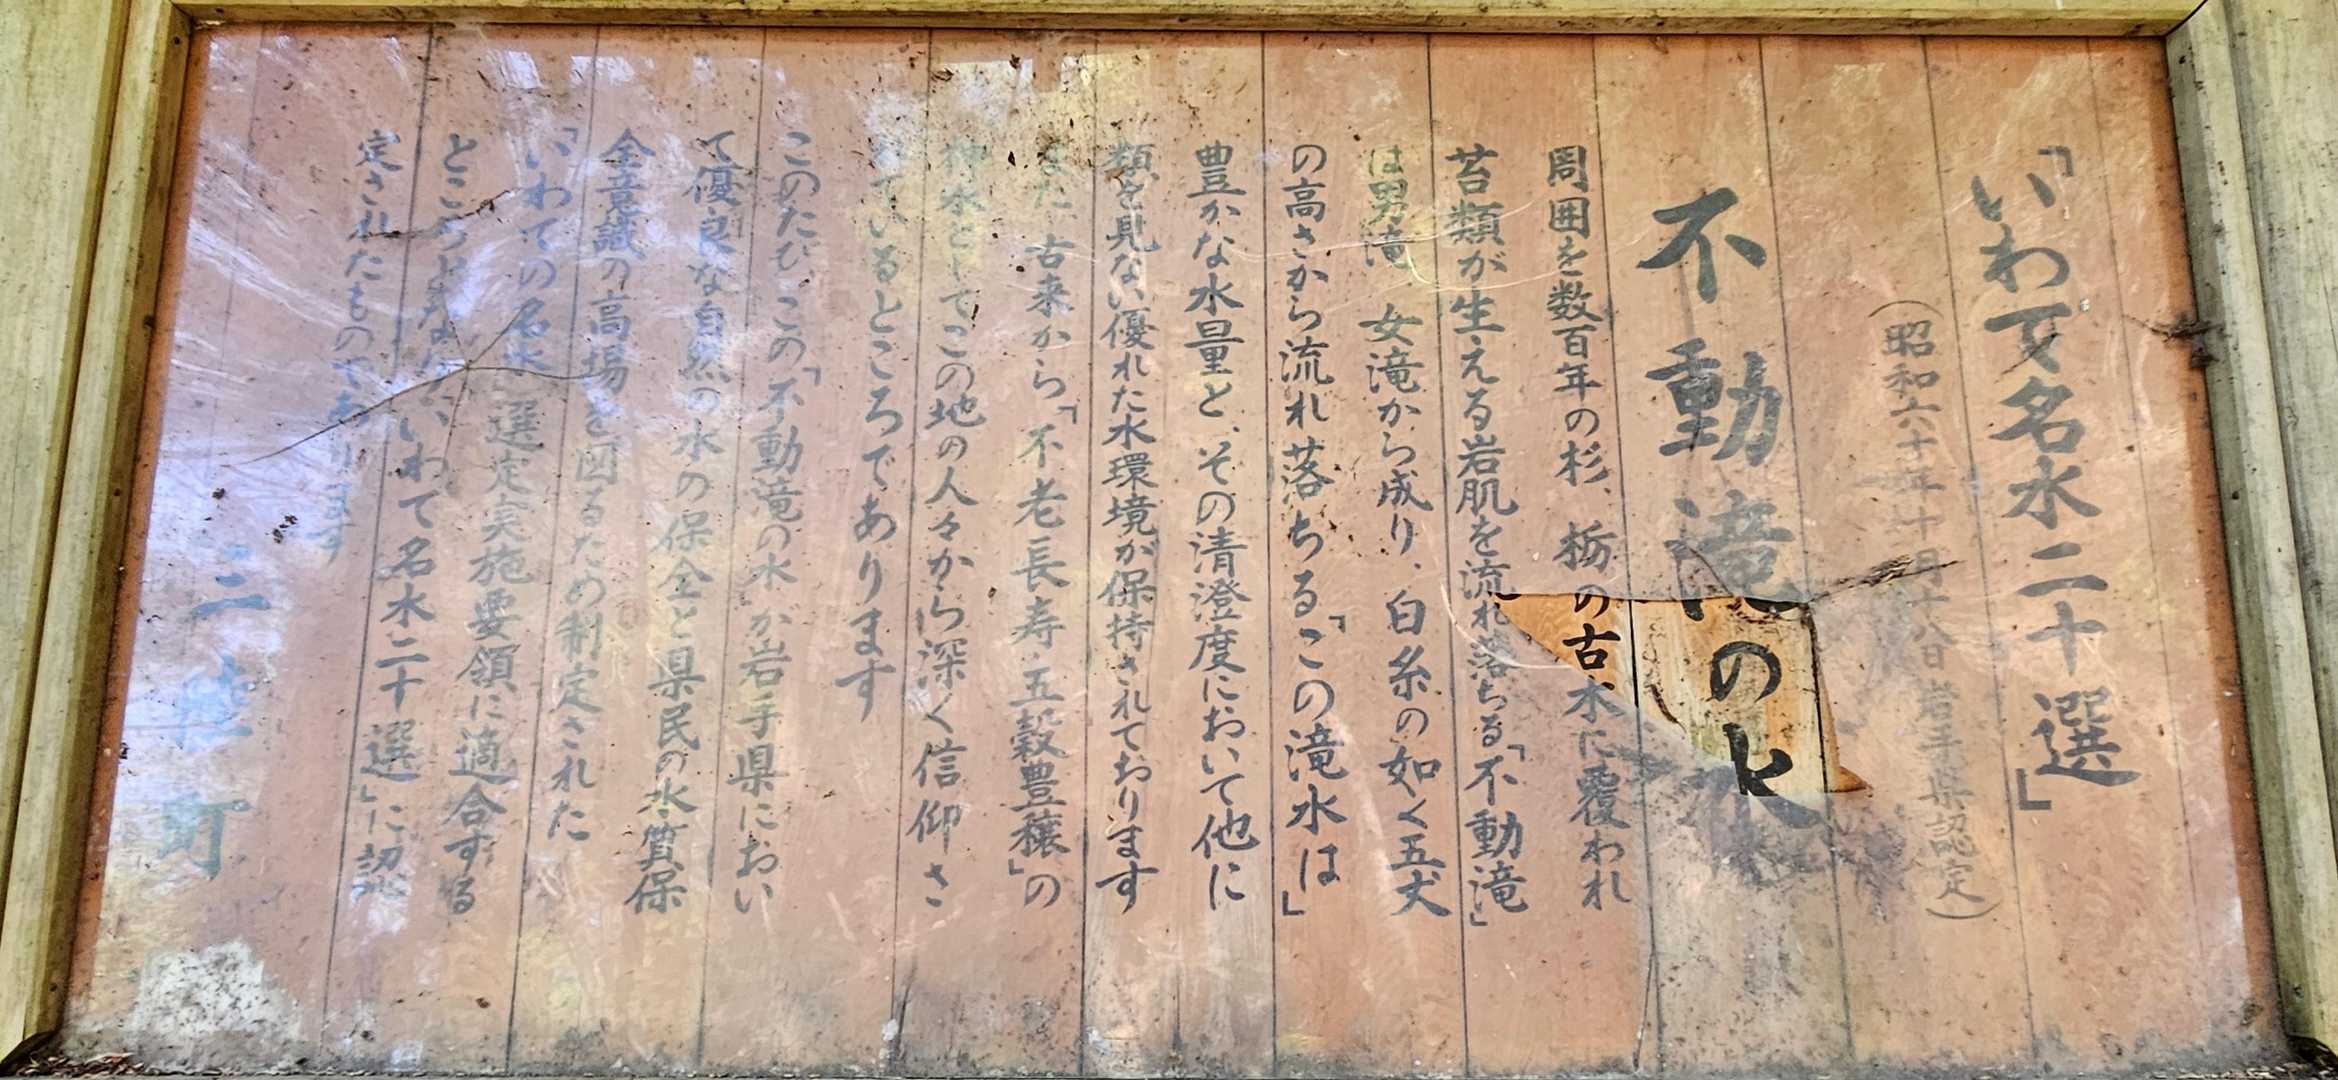 「いわて名水二十選」
（昭和六十年十月十八日岩手県認定）
不動滝の水
周囲を数百年の杉、栃の古木に覆われ
苔類が生える岩肌を流れ落ちる「不動滝」
は男滝、女滝から成り、白糸の如く五丈
の高さから流れ落ちる「この滝水は」
豊かな水量と、その清澄度において他に
類を見ない優れた水環境が保持されております
また、古来から「不老長寿・五穀豊穣」の
神水としてこの地の人々から深く信仰さ
れているところであります
このたび、この「不動滝の水」が岩手県におい
て優良な自然の水の保全と県民の水質保
全意識の高場を図るため制定された
「いわての名水」選定実施要領に適合する
ところとなり「いわて名水二十選」に認
定されたものであります
町